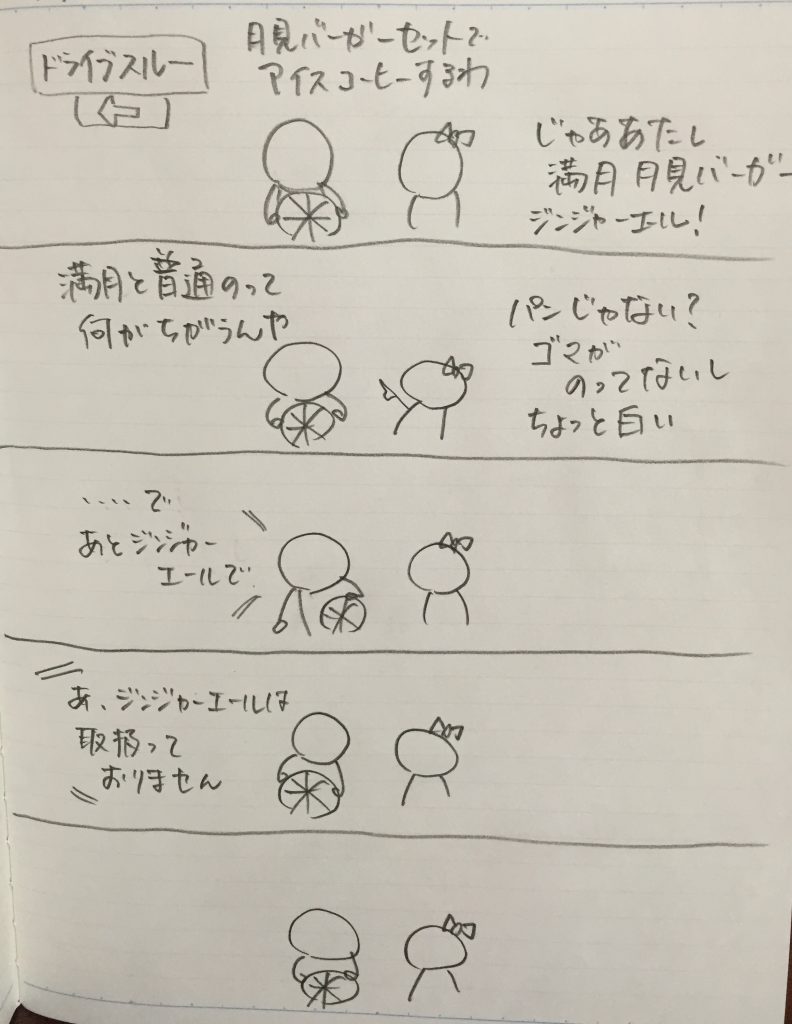 ドライブスルー
月見バーガーセットで
アイスコーヒーするわ
じゃああたし
満月 月見バーガー
ジンジャーエール!
満月と普通のって
何がちがうんや
パンじゃない?
ゴマが
のってないし
ちょっと白い
‥‥で
あとジンジャー
エールで
あ、ジンジャーエールは
取扱って
おりません